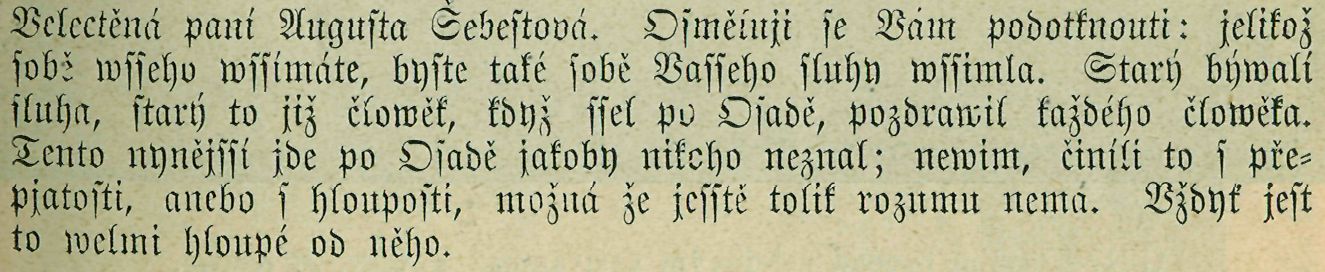 Velectěná paní Augusta Šebestová. Osměiuji se Vám podotknouti: jelikož
sobě wsseho wssímáte, byste také sobě Vasseho sluhy wssimla. Starý býwalí
sluha, starý to již člowěk, když ssel po Osadě, pozdrawil každého člowěka.
Tento nynějssí jde po Osadě jakoby nikcho neznal; newim, činíli to s pře-
pjatosti, anebo s hlouposti, možná že jesstě tolik rozumu nema. Vždyk jest
to welmi hloupé od něho.